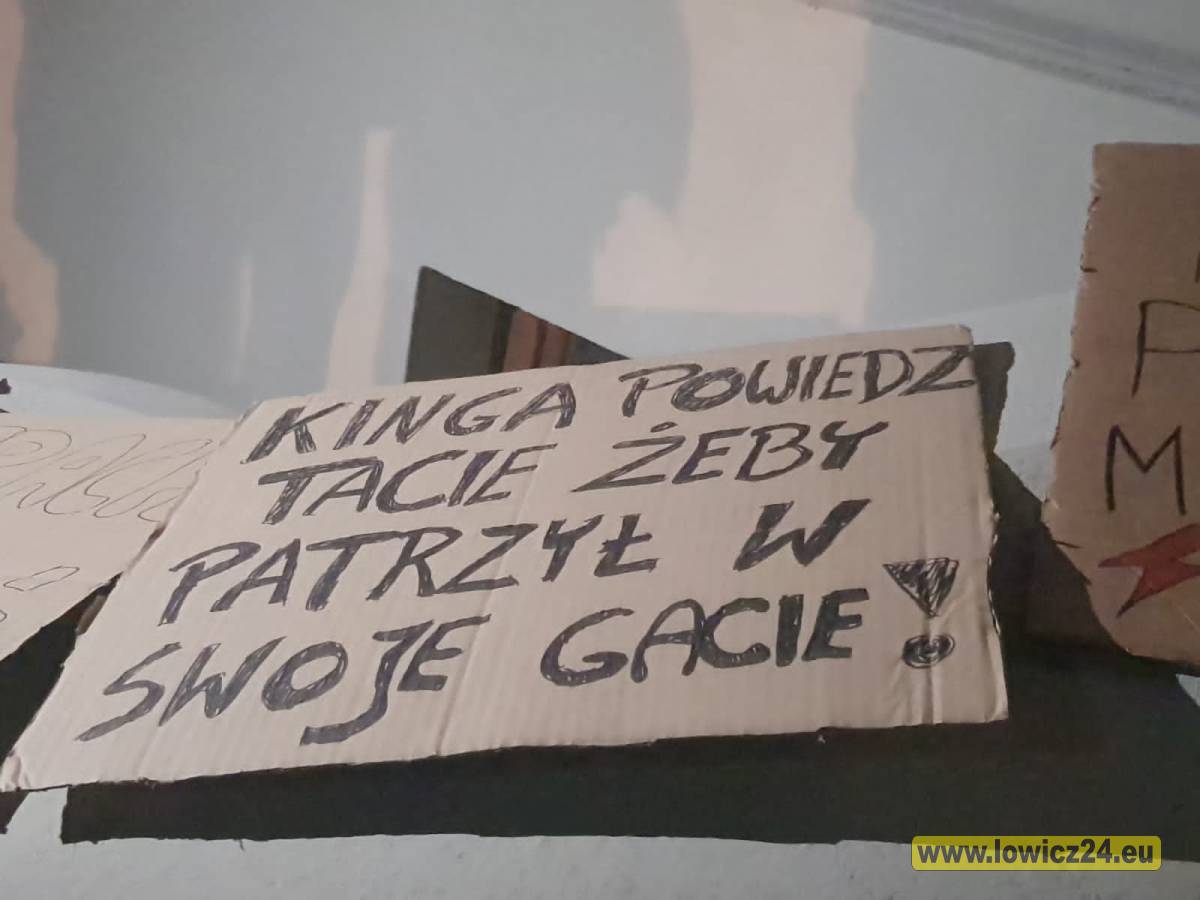 KINGA POWIEDZ
TACIE ŻEBY
PATRZYŁ W
SWOJE GACIE!
P
M
www.lowicz24.eu